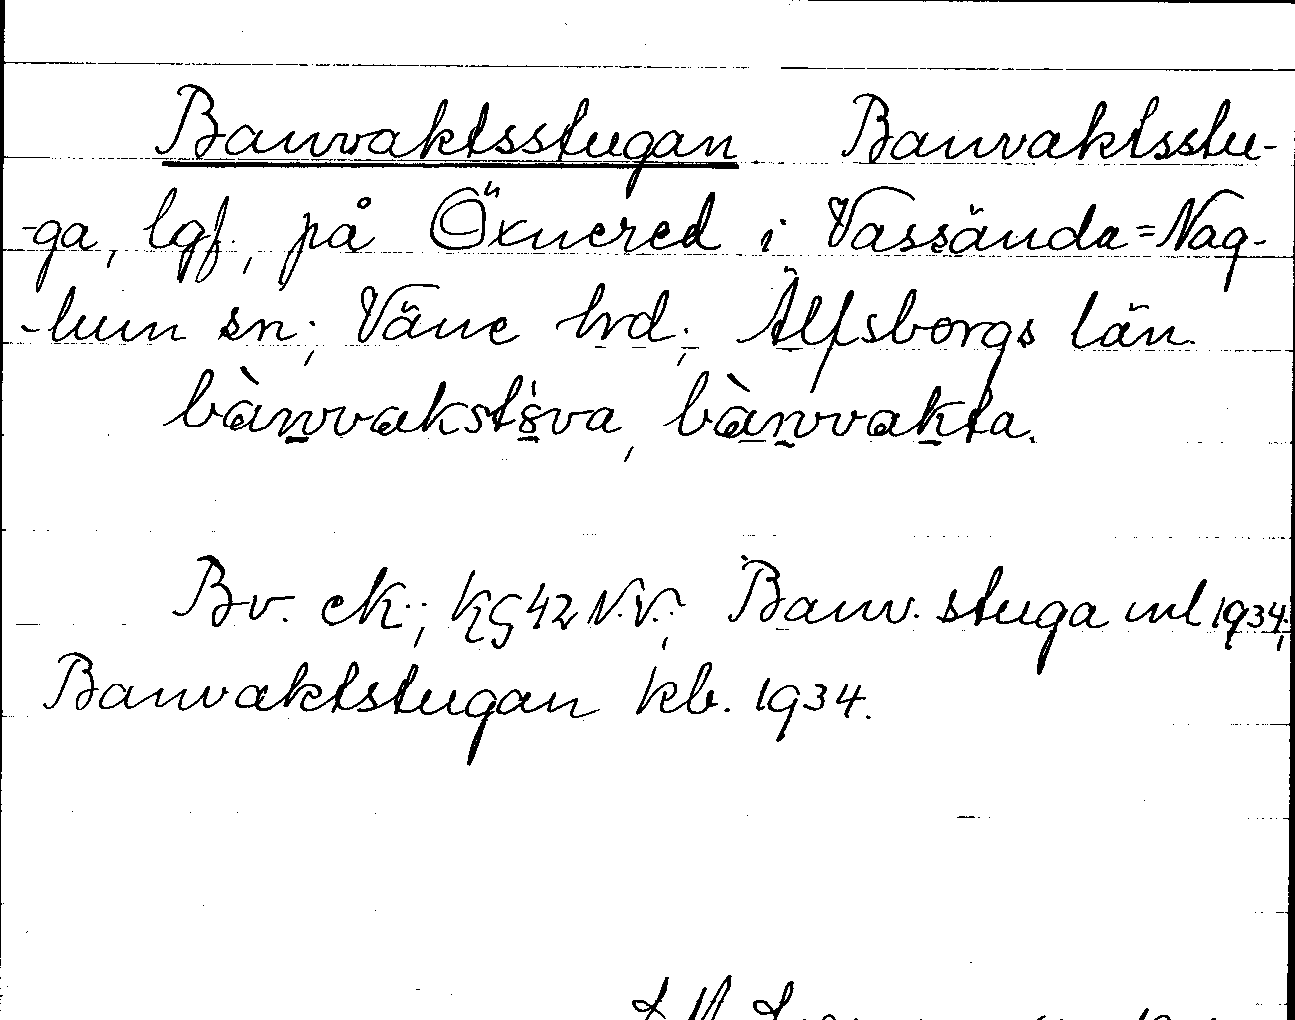 Banvaktsstugan Banvaktsstu-
-ga, lgf., på Öxnered i Vassända=Nag-
-lum sn; Väne hrd; Älfsborgs län.
bànvakstsva, bànvakta.
Bv. ek.; KG42 N.V.; Banv. stuga ml 1934;
Banvaktstugan kb. 1934.